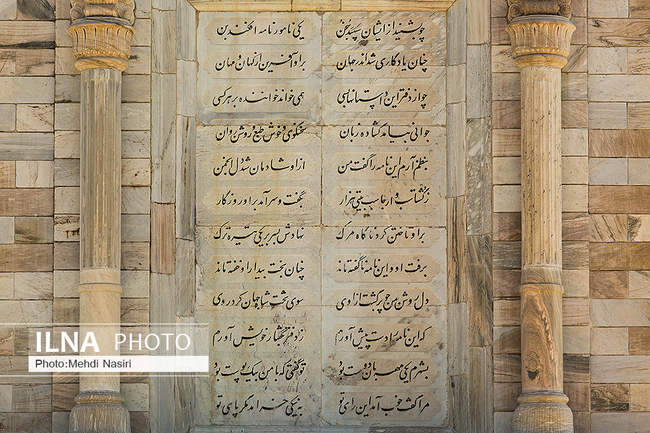 چو بشنید از ایشان سپهبد سخن یکی نامور نامه افکند بن
چنان یادگاری شد اندر جهان بر او آفرین از کهان و مهان
چو از دفتر این داستانها بسی همی خواند خواننده بر هر کسی
جوانی بیامد گشاده زبان سخنگوی و خوش طبع و روشن روان
بنظم آرم این نامه را گفت من از او شادمان شد دل انجمن
ز گشتاسب و ارجاسب بیتی هزار بگفت و سرآمد بر او روزگار
بر او تاختن کرد ناگاه مرگ نهادش بسر بر یکی تیره ترگ
برفت او و این نامه ناگفته ماند چنان بخت بیدار او خفته ماند
دل روشن من چو برگشت از وی سوی تخت شاه جهان کرد روی
که این نامه را دست پیش آورم ز دفتر بگفتار خویش آورم
بشهرم یکی مهربان دوست بود تو گفتی که با من بیک پوست بود
مرا گفت خوب آمد این رای تو به نیکی خرامد مگر پای تو
ILNA PHOTO
Photo:Mehdi Nasiri